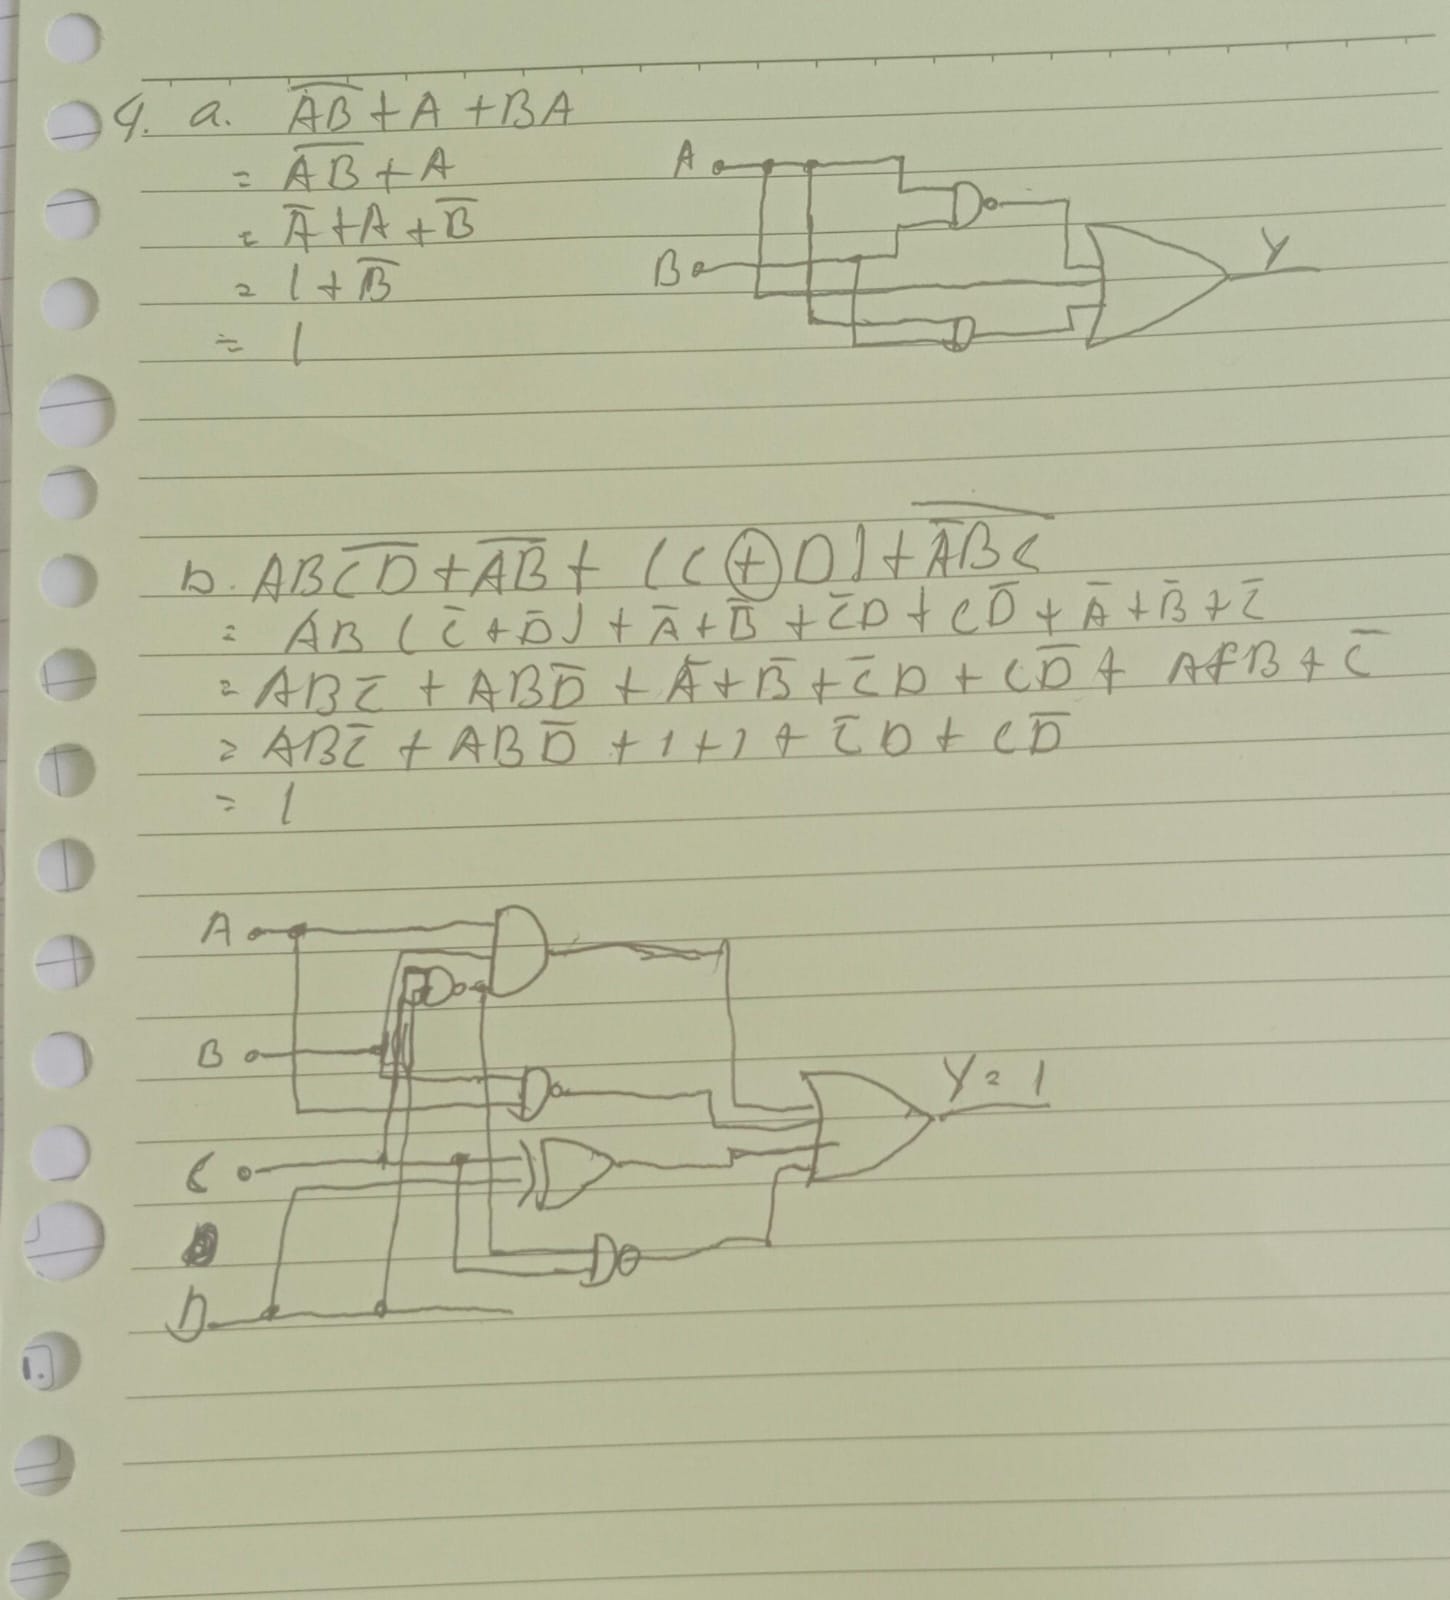 4. a. A̅B̅ + A + BA
= A̅B̅ + A
= A̅ + A + B̅
= 1 + B̅
= 1
A
B
Y
b. ABC̅D̅ + A̅B̅ + (C ⊕ D) + A̅BC
= AB (C̅ + D̅) + A̅ + B̅ + C̅D + CD̅ + A̅ + B̅ + C̅
= ABC̅ + ABD̅ + A̅ + B̅ + C̅D + CD̅ + A + B + C̅
= ABC̅ + ABD̅ + 1 + 1 + C̅D + CD̅
= 1
A
B
Y = 1
C
D